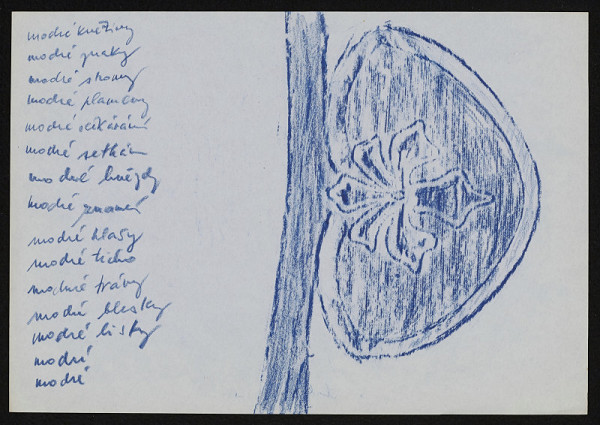 modré květiny
modré ptáky
modré stromy
modré plameny
modré
modré setkání
modré hnízdy
modré znamení
modré hlasy
modré ticho
modré trávy
modré blesky
modré listy
modré
modré